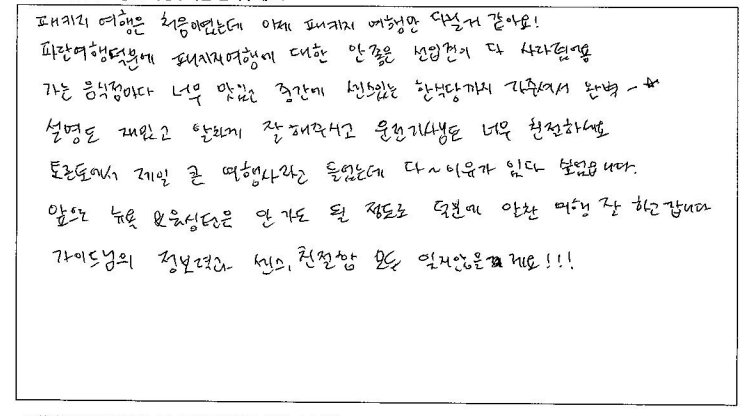 패키지 여행은 처음이였는데 이제 패키지 여행만 다닐거 같아요!
파란여행덕분에 패키지여행에 대한 안좋은 선입견이 다 사라졌어용
가는 음식점마다 너무 맛있고 중간에 센스있는 한식당까지 가주셔서 완벽~☆
설명도 재밌고 알차게 잘해주시고 운전기사님도 너무 친절하세요
토론토에서 제일 큰 여행사라고 들었는데 다~이유가 있다 싶었습니다.
앞으로 뉴욕 워싱턴은 안가도 될 정도로 덕분에 알찬 여행 잘 하고 갑니다
가이드님의 정보력과 센스, 친절함 모두 잊지않을게요!!!